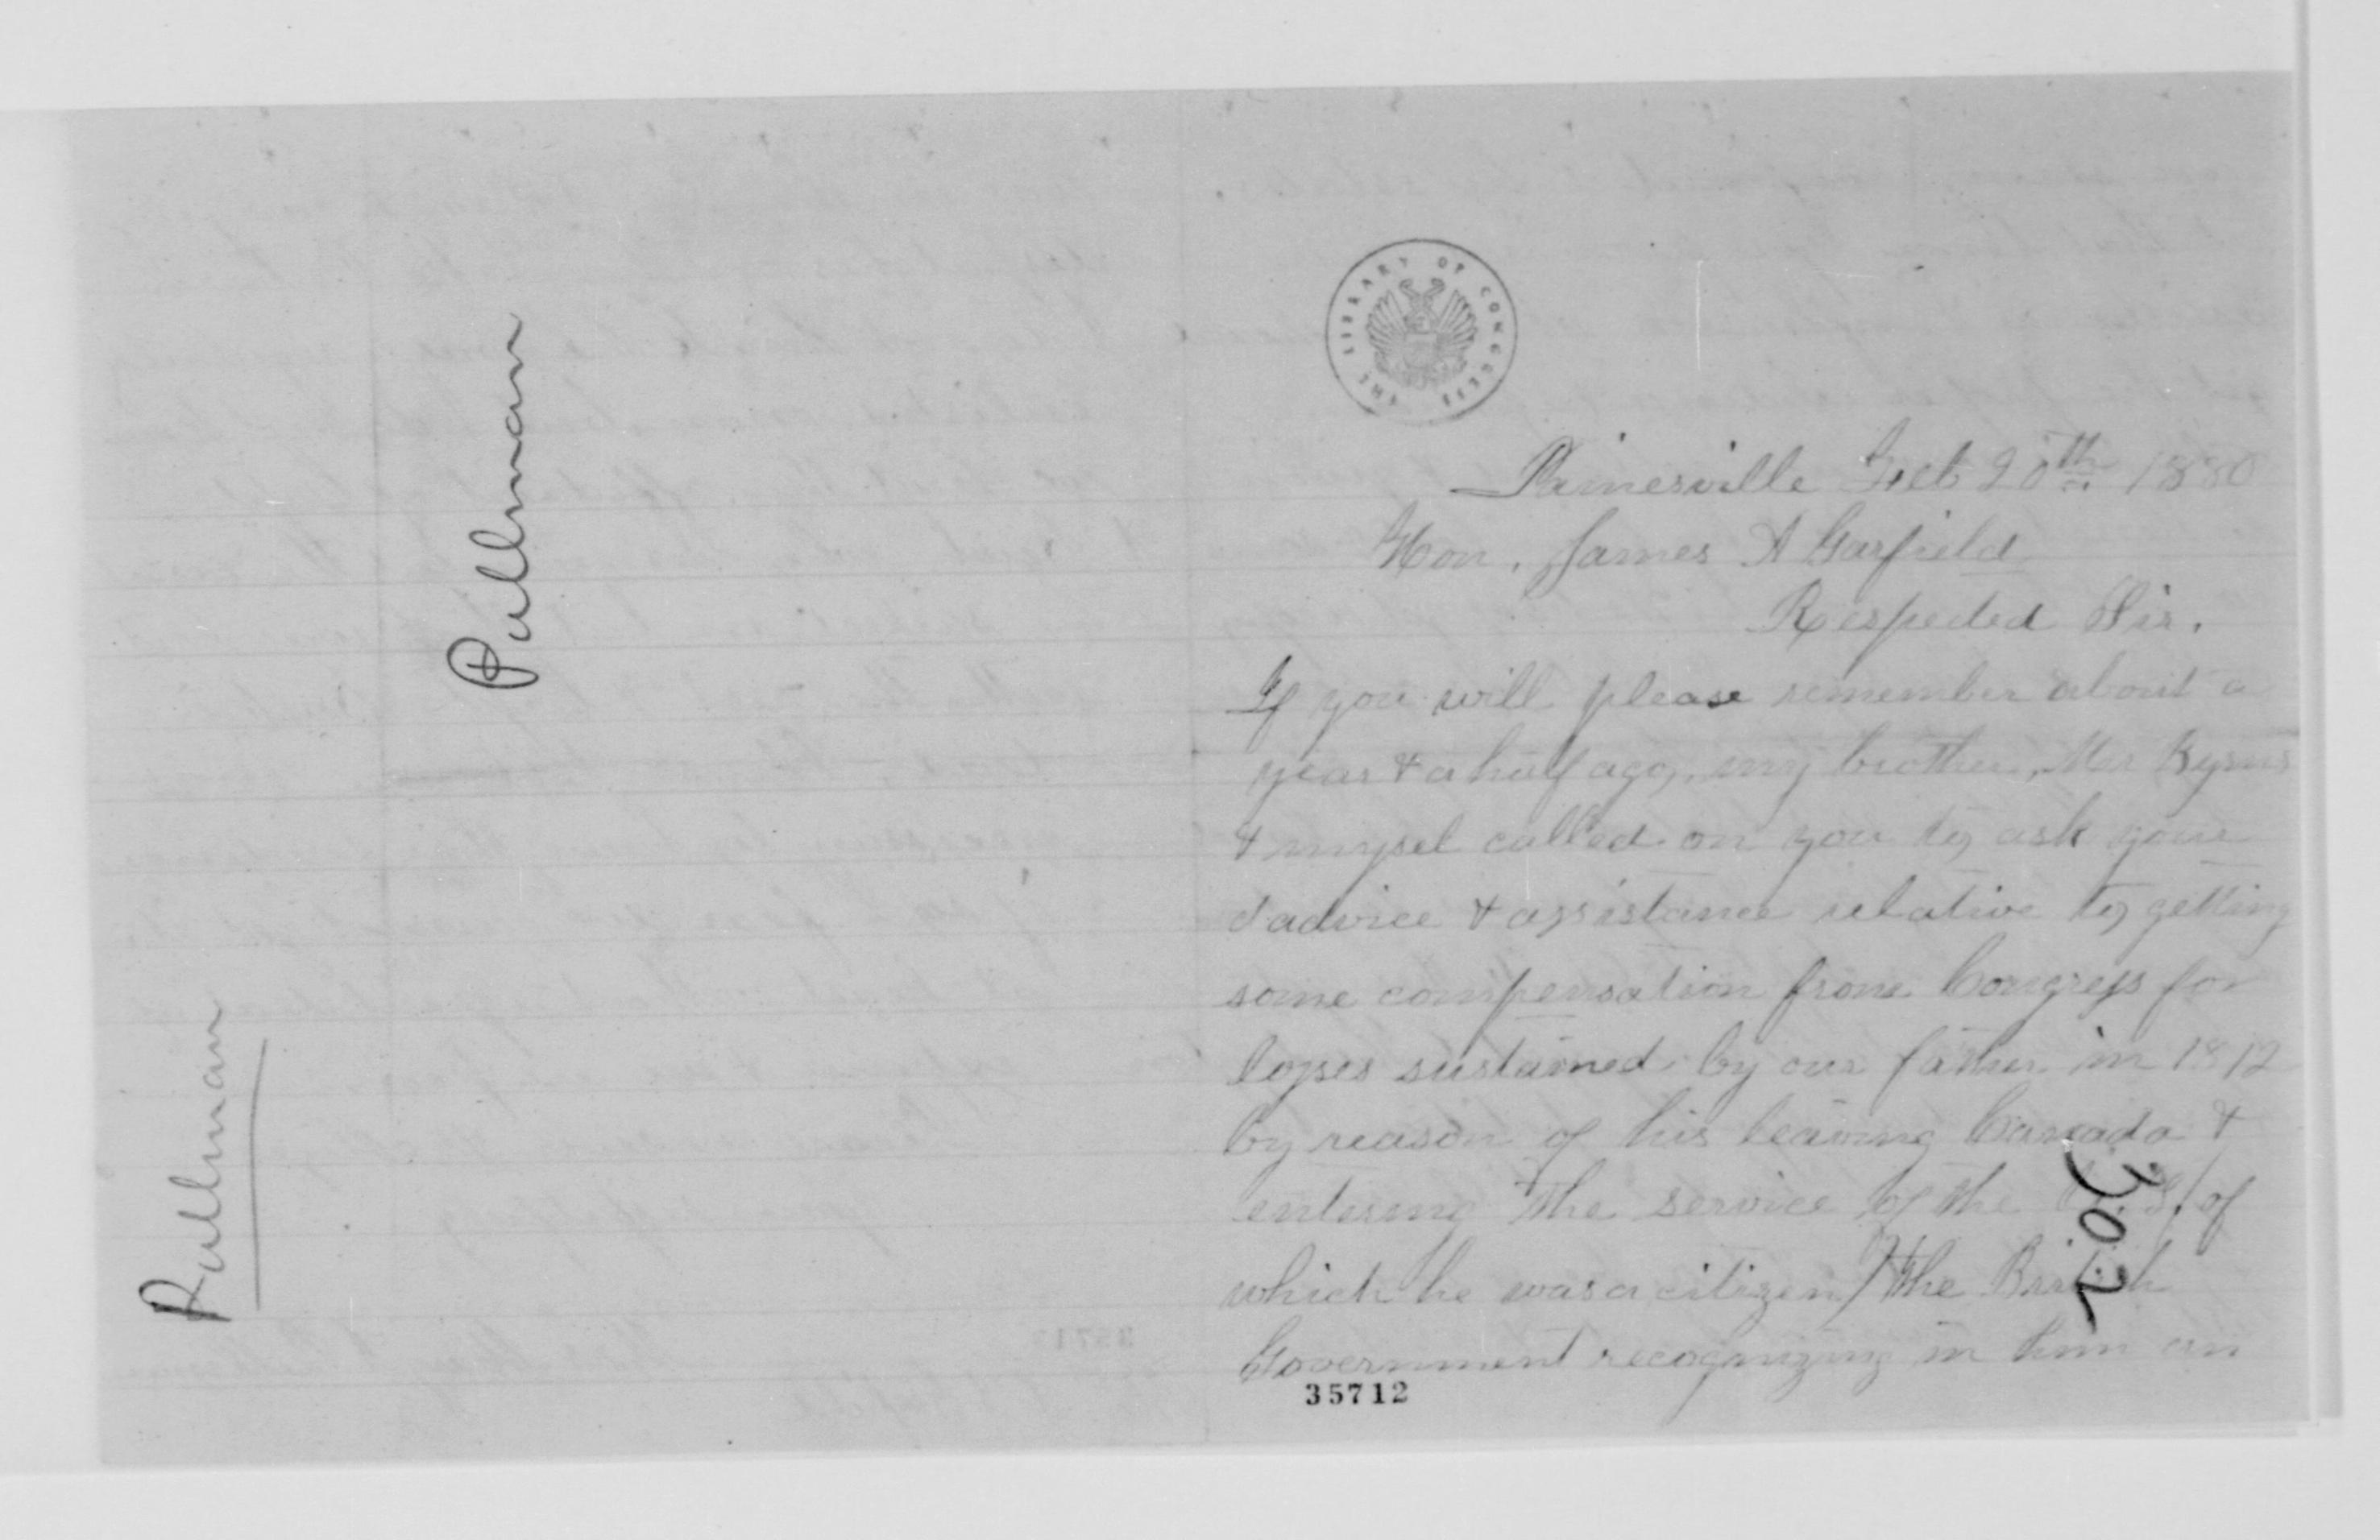 Pullman
Pullman
THE LIBRARY OF CONGRESS
Painesville Feb 20th 1880
Hon. James A Garfield
Respected Sir.
If you will please remember about a
year & a half ago, my brother, Mr
& mysel called on you to ask your
advice & assistance relative to getting
some compensation from Congress for
losses sustained by our father in 1812
by reason of his leaving Canada &
entering the service of the U.S. of
which he was a citizen / the British
Government recognizing in him an
3072
35712